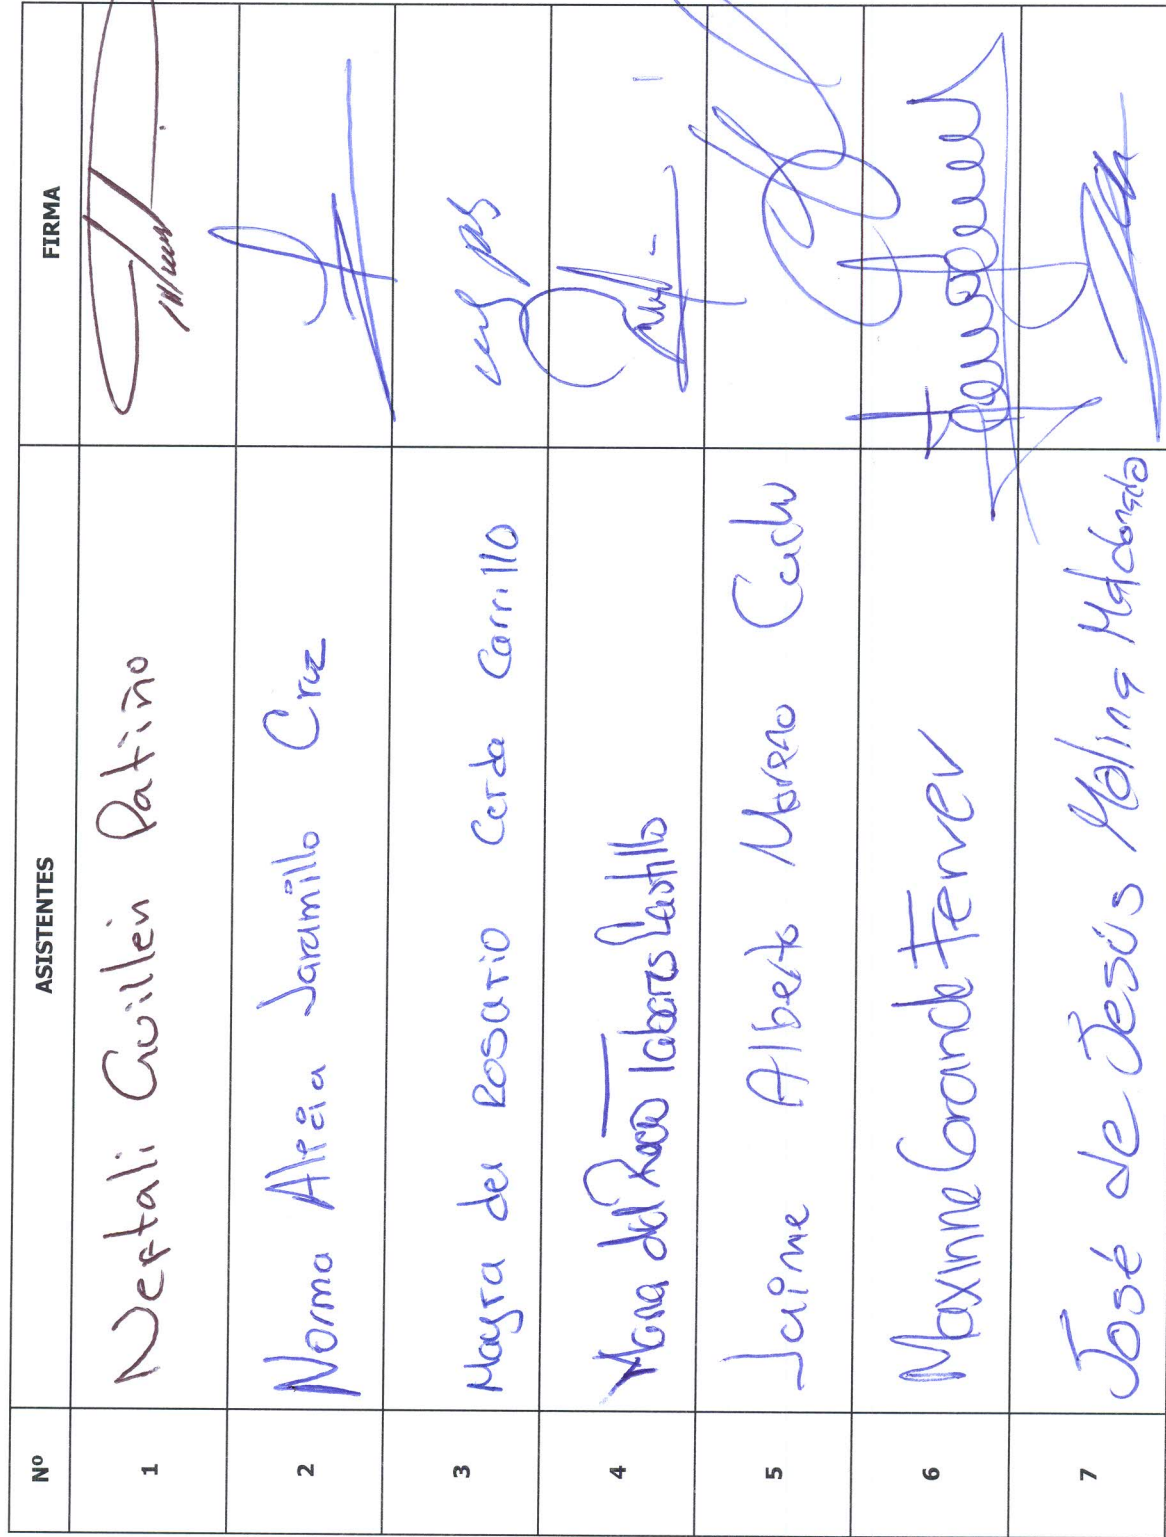 Nº ASISTENTES FIRMA
1 Neftali Guillén Patiño
2 Norma Alicia Jaramillo Cruz
3 Mayra del Rosario Cerda Carrillo
4 Maria del Rocio Tabares Castillo
5 Jaime Alberto Moreno
6 Maxinne Grande Ferrer
7 José de Jesús Molina Maldonado